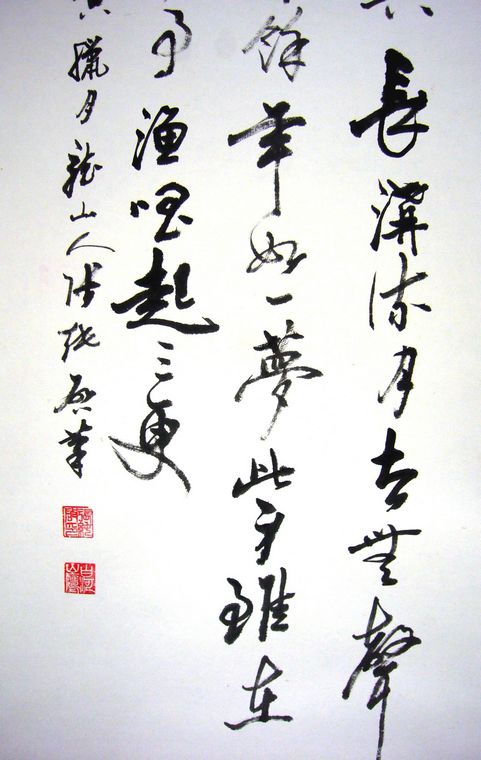 長溝流月去無聲
餘年如一夢此身雖在
事漁唱起三更
臘月龍山人張